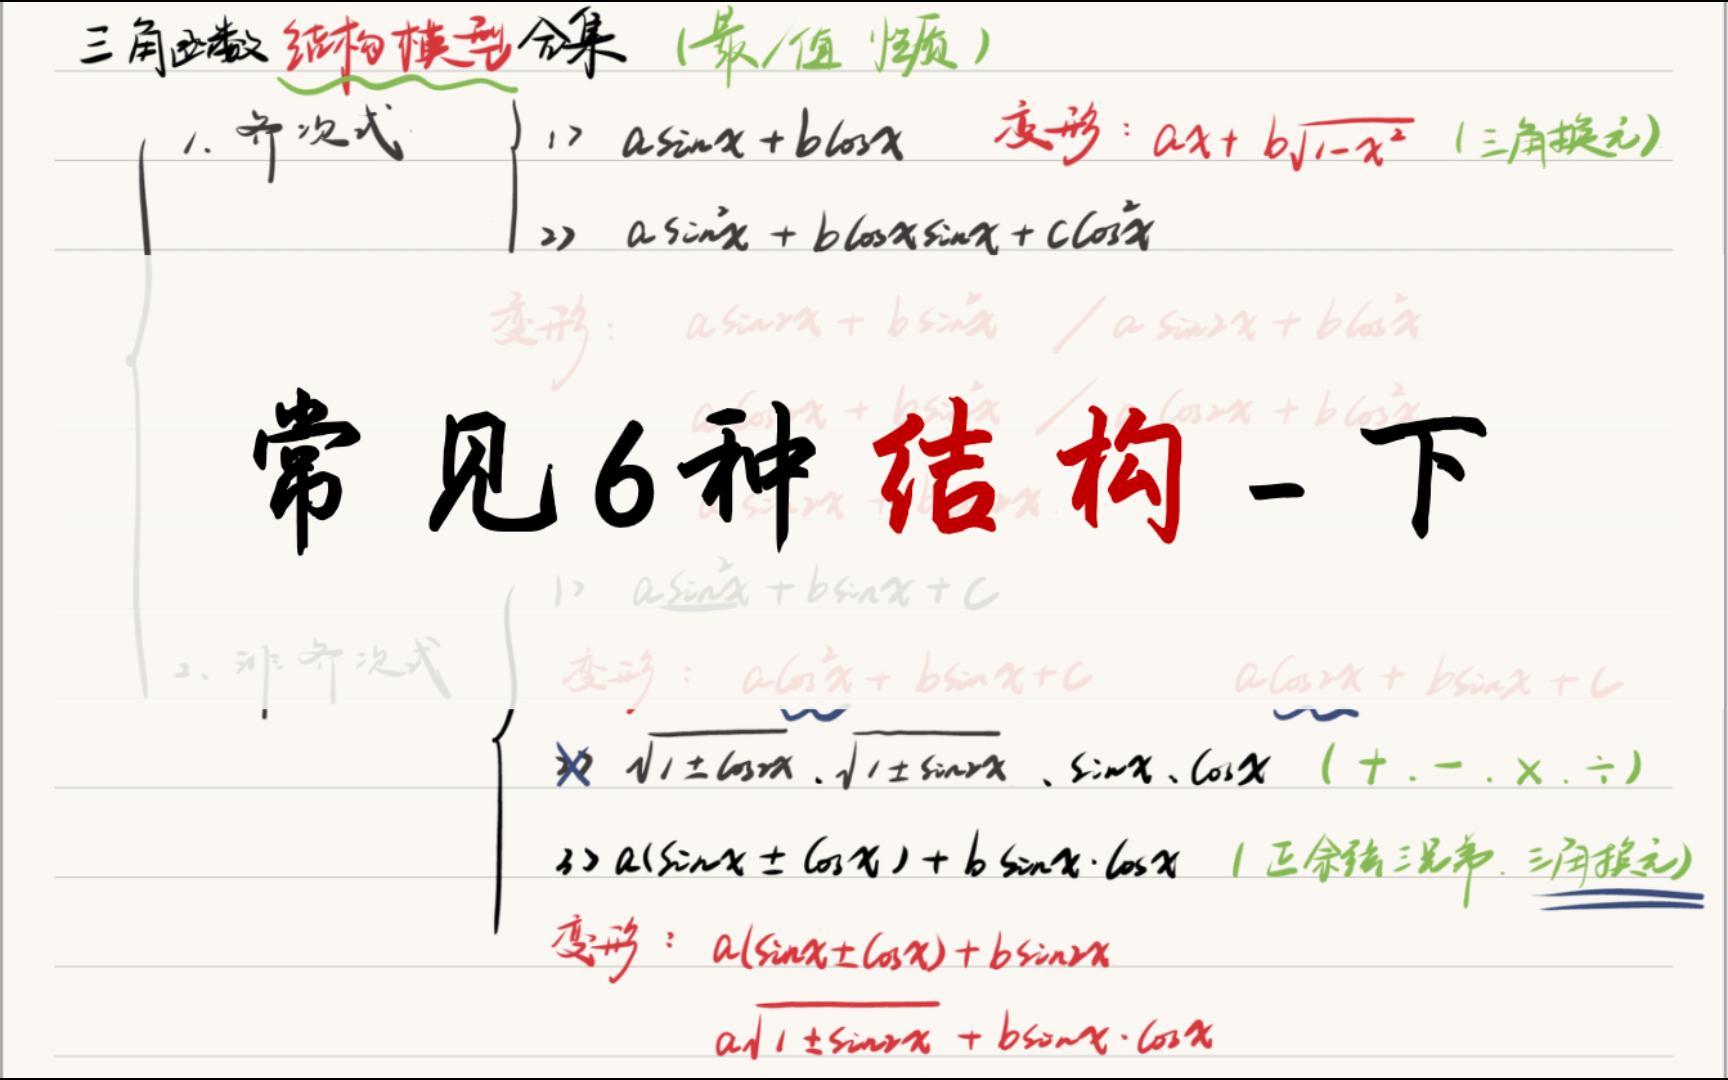 三角函数结构模型合集 (最/值 性质)
1. 齐次式
1> asinx + bcosx 变形: ax + b√1-x² (三角换元)
2> asin²x + bcosxsinx + ccos²x
变形: asin2x + bsin²x / asin2x + bcos²x
acos2x + bsin²x / acos2x + bcos²x
asin2x + bcos2x
常见6种结构-下
1> asin²x + bsinx + c
2. 非齐次式
变形: acos²x + bsinx + c acos2x + bsinx + c
2> √1±cos2x 、√1±sin2x 、sinx、cosx (+.-.×.÷)
3> a(sinx ± cosx) + bsinx·cosx (正余弦三兄弟.三角换元)
变形: a(sinx±cosx) + bsin2x
a√1±sin2x + bsinx·cosx